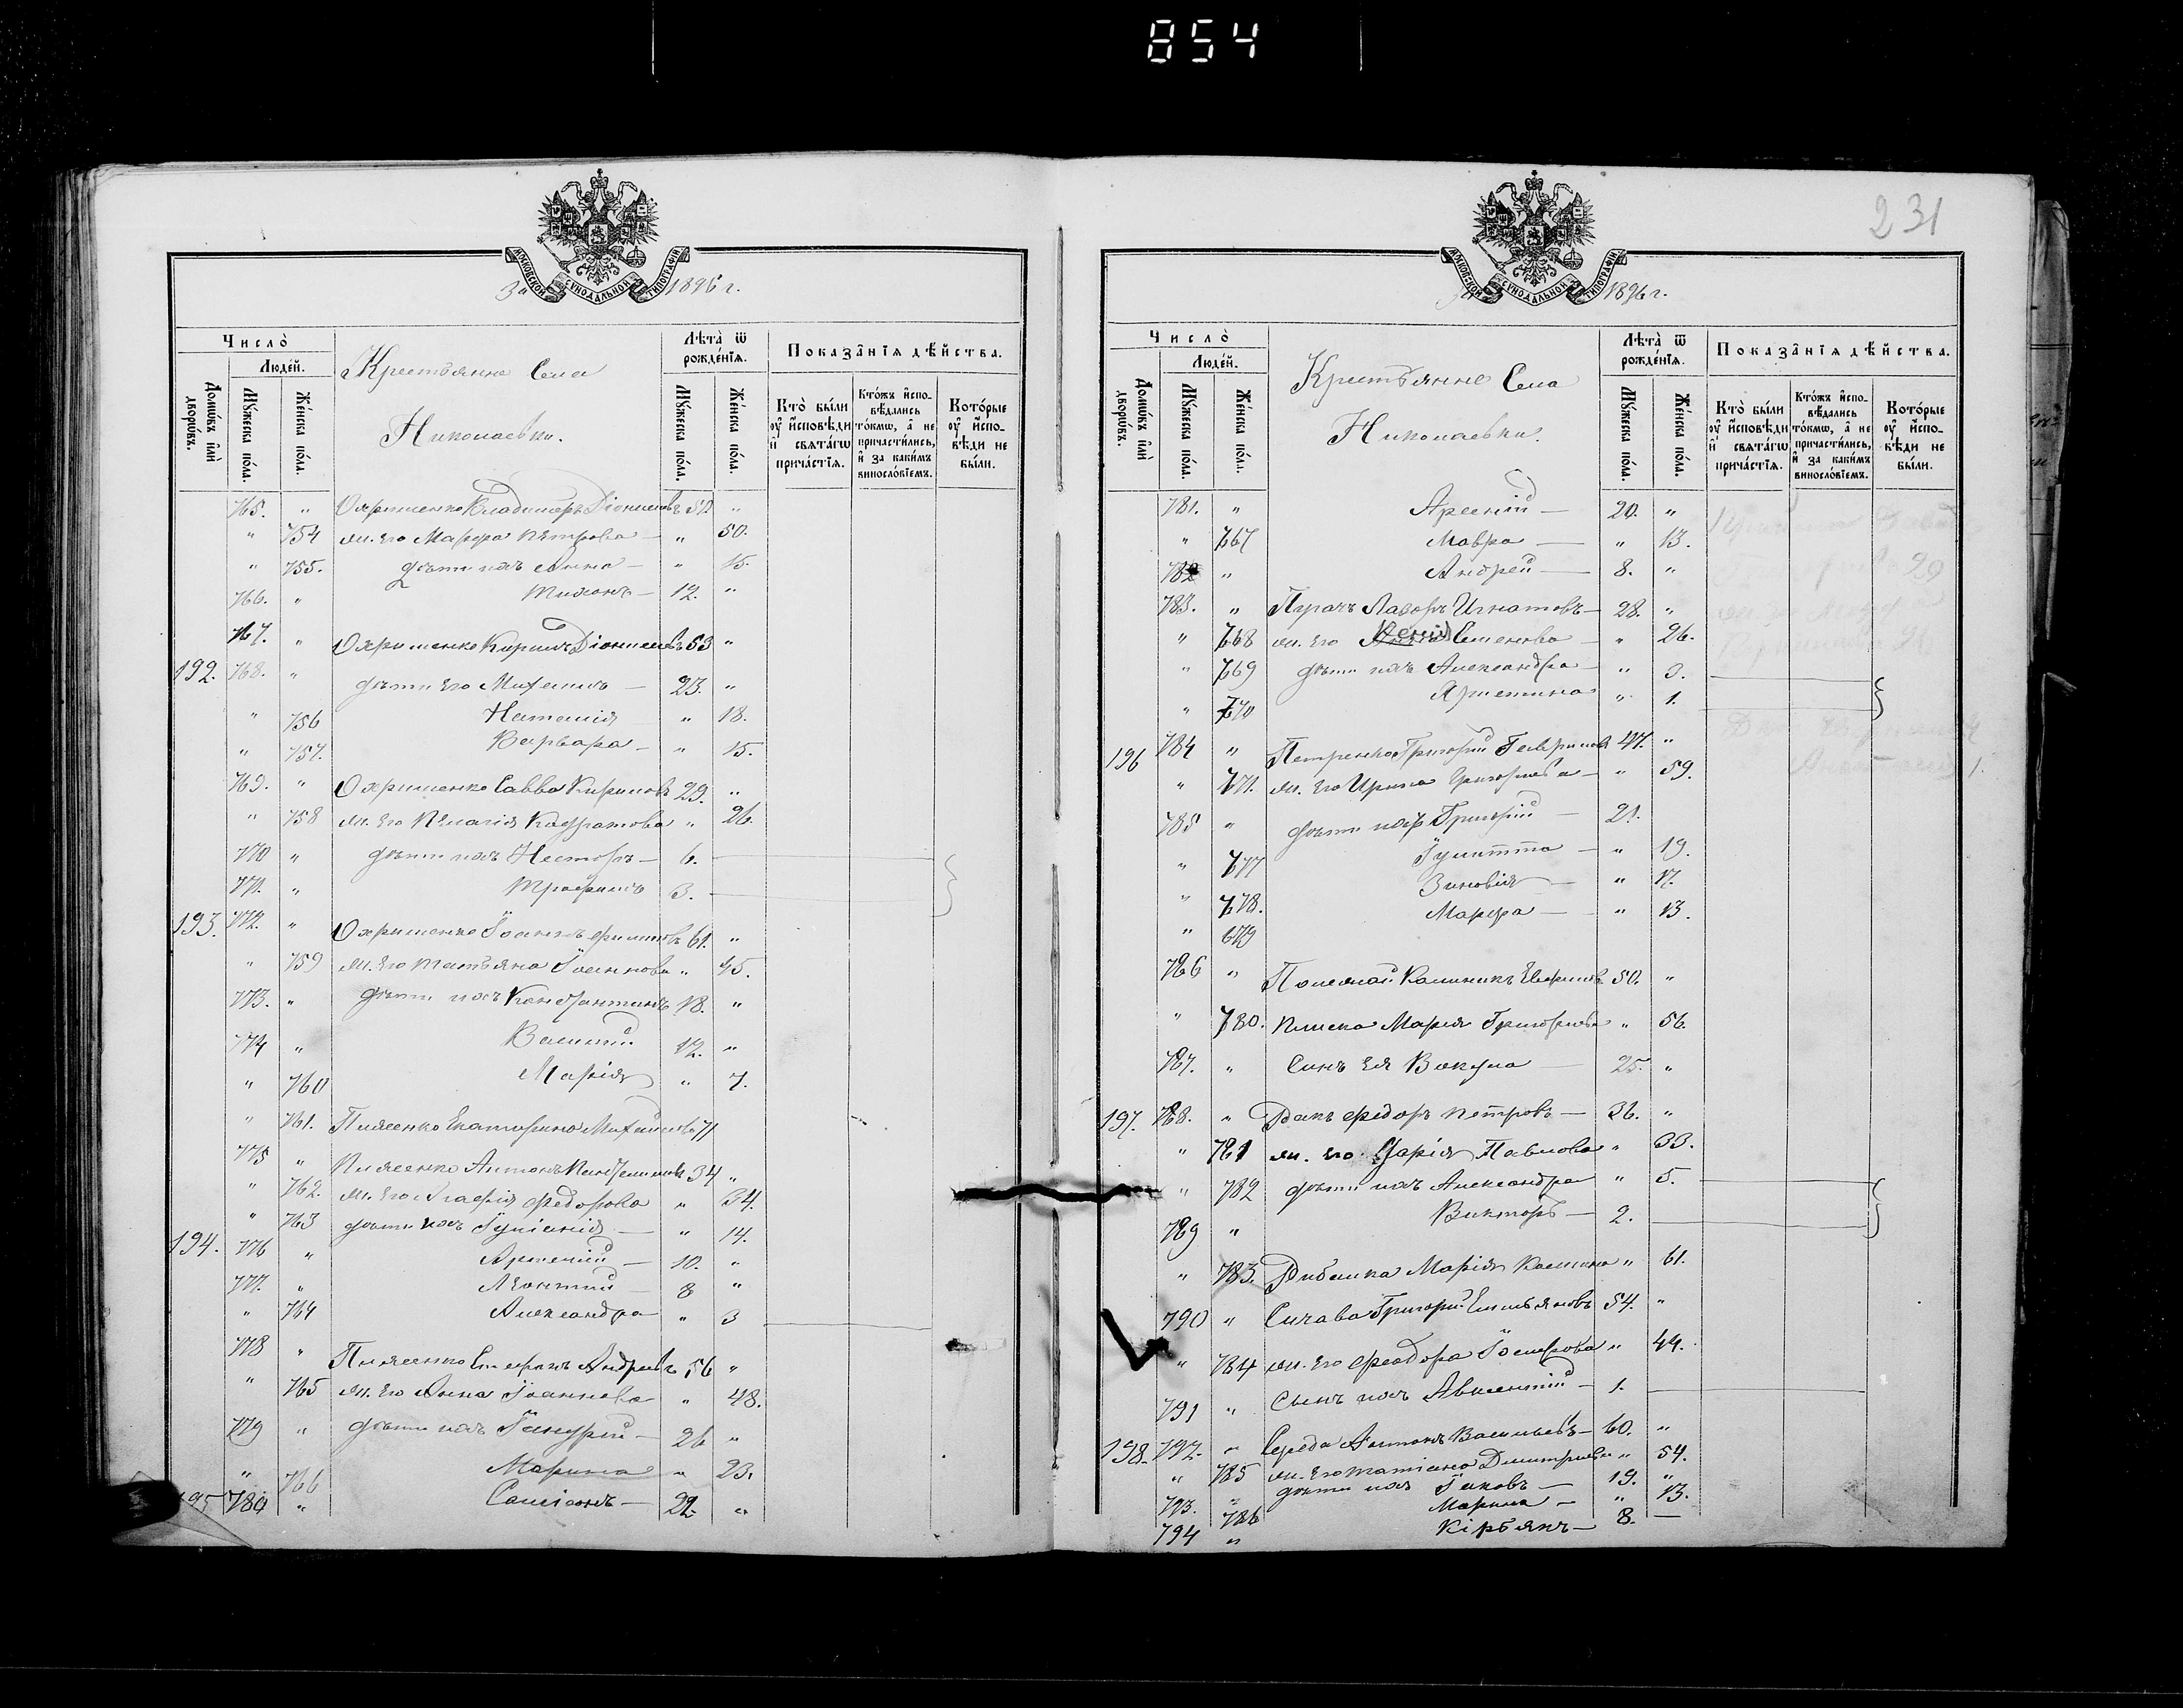 854
231
МОСКОВСКОЙ СѴНОДАЛЬНОЙ ТИПОГРАФІИ
За 1896 г.
Число̀
Людей.
Домѡвъ и҆лѝ дворѡвъ.
Мꙋ́жеска по́ла.
Же́нска по́ла.
Крестьяне Села
Николаевки.
Лѣта̀ ѿ рожде́нїѧ.
Мꙋ́жеска по́ла.
Же́нска по́ла.
Показа̑нїѧ дѣ́йства.
Кто̀ бы́ли оу҆ и҆сповѣди и҆ свѧта́гѡ прича́стїѧ.
Кто́жъ и҆спо- вѣдались то́кмѡ, а҆ не причасти́лись, и҆ за каки́мъ винослѡ́вїемъ.
Кото́рые оу҆ и҆спо- вѣди не бы́ли.
765. " Охрименко Владимиръ Діонисіевъ 51. "
" 754 ж. его Марфа Петрова — " 50.
" 755. дѣти ихъ Анна — " 15.
766. " Тихонъ — 12. "
767. " Охрименко Кирилъ Діонисіевъ 53 "
192. 768. " дѣти его Михаилъ — 23. "
" 756 Наталія — " 18.
" 757. Варвара — " 15.
769. " Охрименко Савва Кириловъ 29. "
" 758 ж. его Пелагія Кодратова " 26.
770 " дѣти ихъ Несторъ — 6.
771. " Трофимъ 3.
193. 772. " Охрименко Іоаннъ Филиповъ 61. "
" 759 ж. его Татьяна Іоаннова " 45.
773. " дѣти ихъ Константинъ 18. "
774 " Василій 12. "
" 760 Марія " 7.
" 761. Пилясенко Екатерина Михайлова 71
775 " Пилясенко Антонъ 34 "
" 762. ж. его Агафія Федорова " 34.
" 763 дѣти ихъ Іуліанія — " 14.
194. 776 " Арсеній — 10. "
777. " Леонтій — 8 "
" 764 Александра " 3
778 " Пилясенко Стефанъ Андреевъ 56 "
" 765 ж. его Анна Іоаннова " 48.
779 " дѣти ихъ — 26 "
" 766 Марина " 23.
195 780 " — 22. "
МОСКОВСКОЙ СѴНОДАЛЬНОЙ ТИПОГРАФІИ
1896 г.
Число̀
Людей.
Домѡвъ и҆лѝ дворѡвъ.
Мꙋ́жеска по́ла.
Же́нска по́ла.
Крестьянне Села
Николаевки.
Лѣта̀ ѿ рожде́нїѧ.
Мꙋ́жеска по́ла.
Же́нска по́ла.
Показа̑нїѧ дѣ́йства.
Кто̀ бы́ли оу҆ и҆сповѣди и҆ свѧта́гѡ прича́стїѧ.
Кто́жъ и҆спо- вѣдались то́кмѡ, а҆ не причасти́лись, и҆ за каки́мъ винослѡ́вїемъ.
Кото́рые оу҆ и҆спо- вѣди не бы́ли.
781. " Арсеній — 20. "
" 767 Мавра — " 13.
782 " Андрей — 8. "
783. " Пугачъ Лазорь Игнатовъ — 28. "
" 768 ж. его Ксенія Семенова — " 26.
" 769 дѣти ихъ Александра — " 3.
" 770 Христина " 1.
196 784 " Петренко Григорій Гавриловъ 47. "
" 771. ж. его Ирина Григорьева — " 59.
785 " дѣти ихъ Григорій — 21.
" 777 Іулитта — " 19.
" 778. Зиновія — " 17.
" 679 Марфа — " 13.
786 " Калиникъ 50. "
" 780. Плиска Марія Григорьева " 56.
787. " Синъ ея Вакула — 25. "
197. 788. " Федоръ Петровъ — 36. "
" 781 ж. его Дарія Павлова " 33.
" 782 дѣти ихъ Александра " 5.
789 " Викторъ — 2.
" 783. Марія " 61.
790 " Сичава Григорій Емильяновъ 54. "
" 784 ж. его Феодора Іосифова " 44.
791 " Сынъ ихъ Авксентій — 1.
198. 792. " Середа Антонъ Васильевъ — 60. "
" 785 ж. его Татіана Димитріева " 54.
793. " дѣти ихъ Іаковъ — 19. "
786 Марина — " 13.
794 " Кірьякъ — 8. —